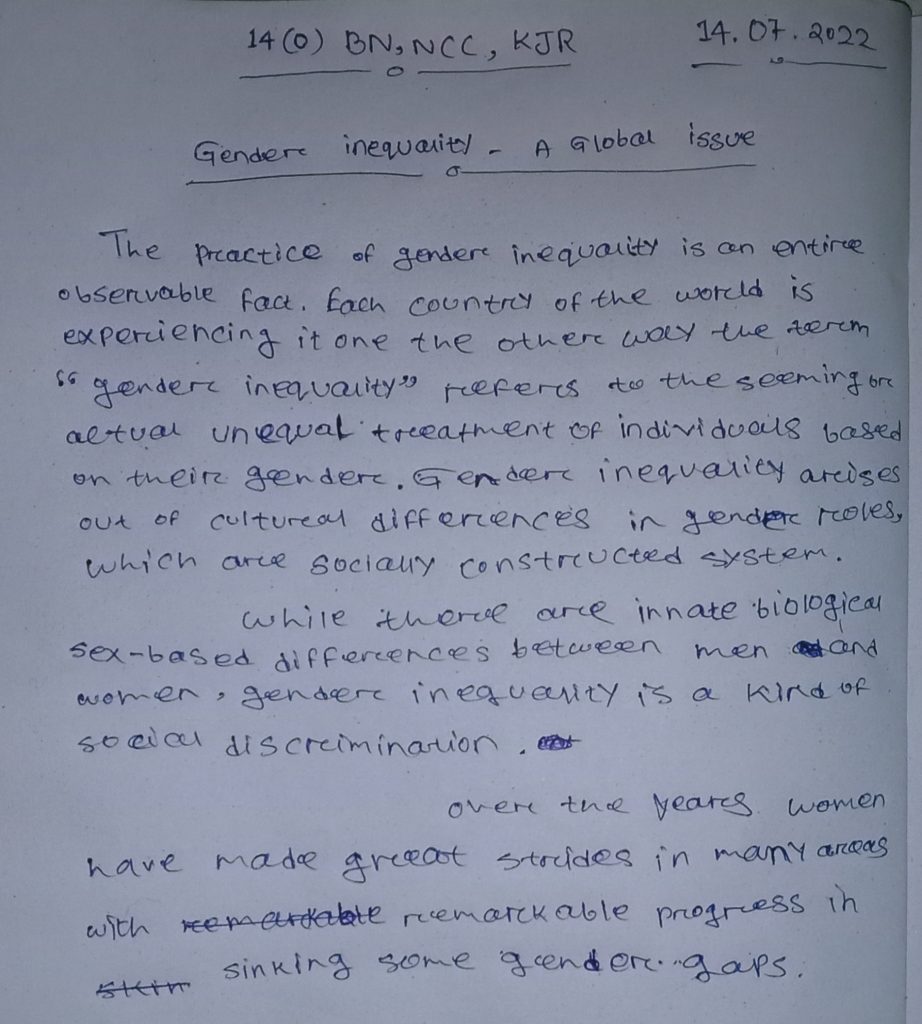 14 (O) BN, NCC, KJR 14.07.2022
Gender inequality - A Global issue
The practice of gender inequality is an entire
observable fact. Each country of the world is
experiencing it one the other way the term
"gender inequality" refers to the seeming or
actual unequal treatment of individuals based
on their gender. Gender inequality arises
out of cultural differences in gender roles,
which are socially constructed system.
While there are innate biological
sex-based differences between men and
women, gender inequality is a kind of
social discrimination.
over the years women
have made great strides in many areas
with remarkable remarkable progress in
skin sinking some gender gaps.